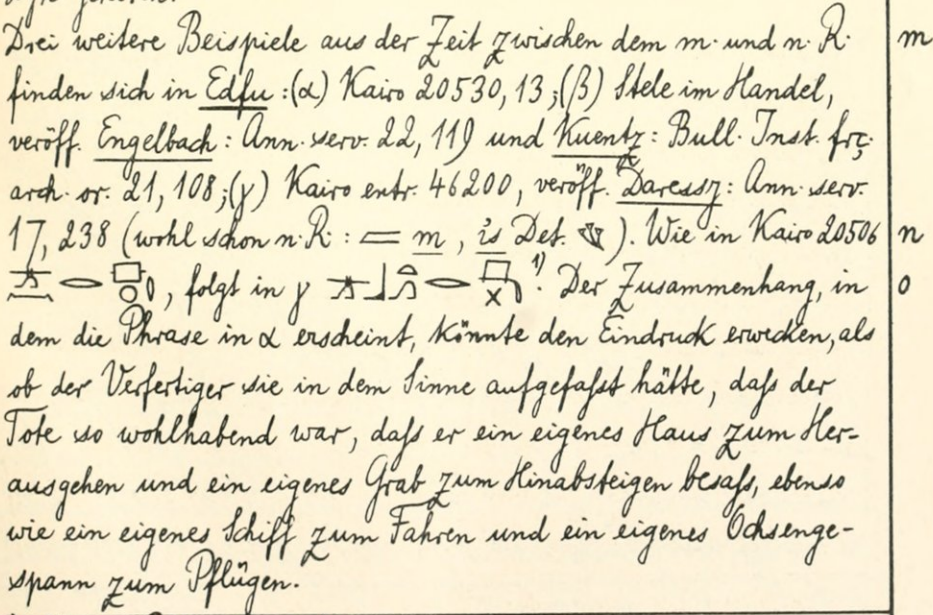 Drei weitere Beispiele aus der Zeit zwischen dem m. und n. R. m
finden sich in Edfu :(α) Kairo 20530, 13 ;(β) Stele im Handel,
veröff. Engelbach : Ann. serv. 22, 119 und Kuentz : Bull. Inst. frç.
arch. or. 21, 108 ;(γ) Kairo entr. 46200, veröff. Daressy : Ann. serv.
17, 238 (wohl schon n. R. : m , is Det. ). Wie in Kairo 20506 n
, folgt in γ ¹⁾. Der Zusammenhang, in o
dem die Phrase in α erscheint, könnte den Eindruck erwecken, als
ob der Verfertiger sie in dem Sinne aufgefaßt hätte, daß der
Tote so wohlhabend war, daß er ein eigenes Haus zum Her-
ausgehen und ein eigenes Grab zum Hinabsteigen besaß, ebenso
wie ein eigenes Schiff zum Fahren und ein eigenes Ochsenge-
spann zum Pflügen.